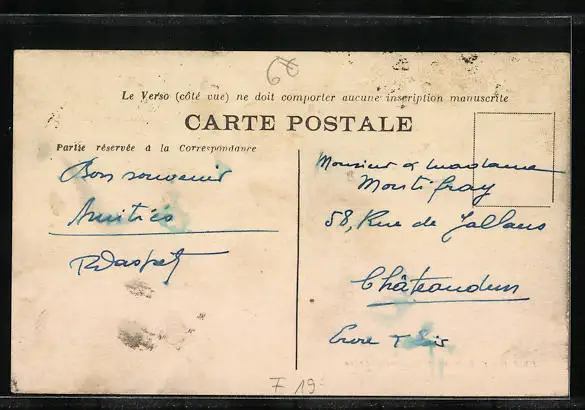 6€
Le Verso (côté vue) ne doit comporter aucune inscription manuscrite
CARTE POSTALE
Partie réservée à la Correspondance
Bon souvenir
Amitiés
Monsieur & Madame
Montifray
58, Rue de Jallans
Châteaudun
Eure & Loir
F 19